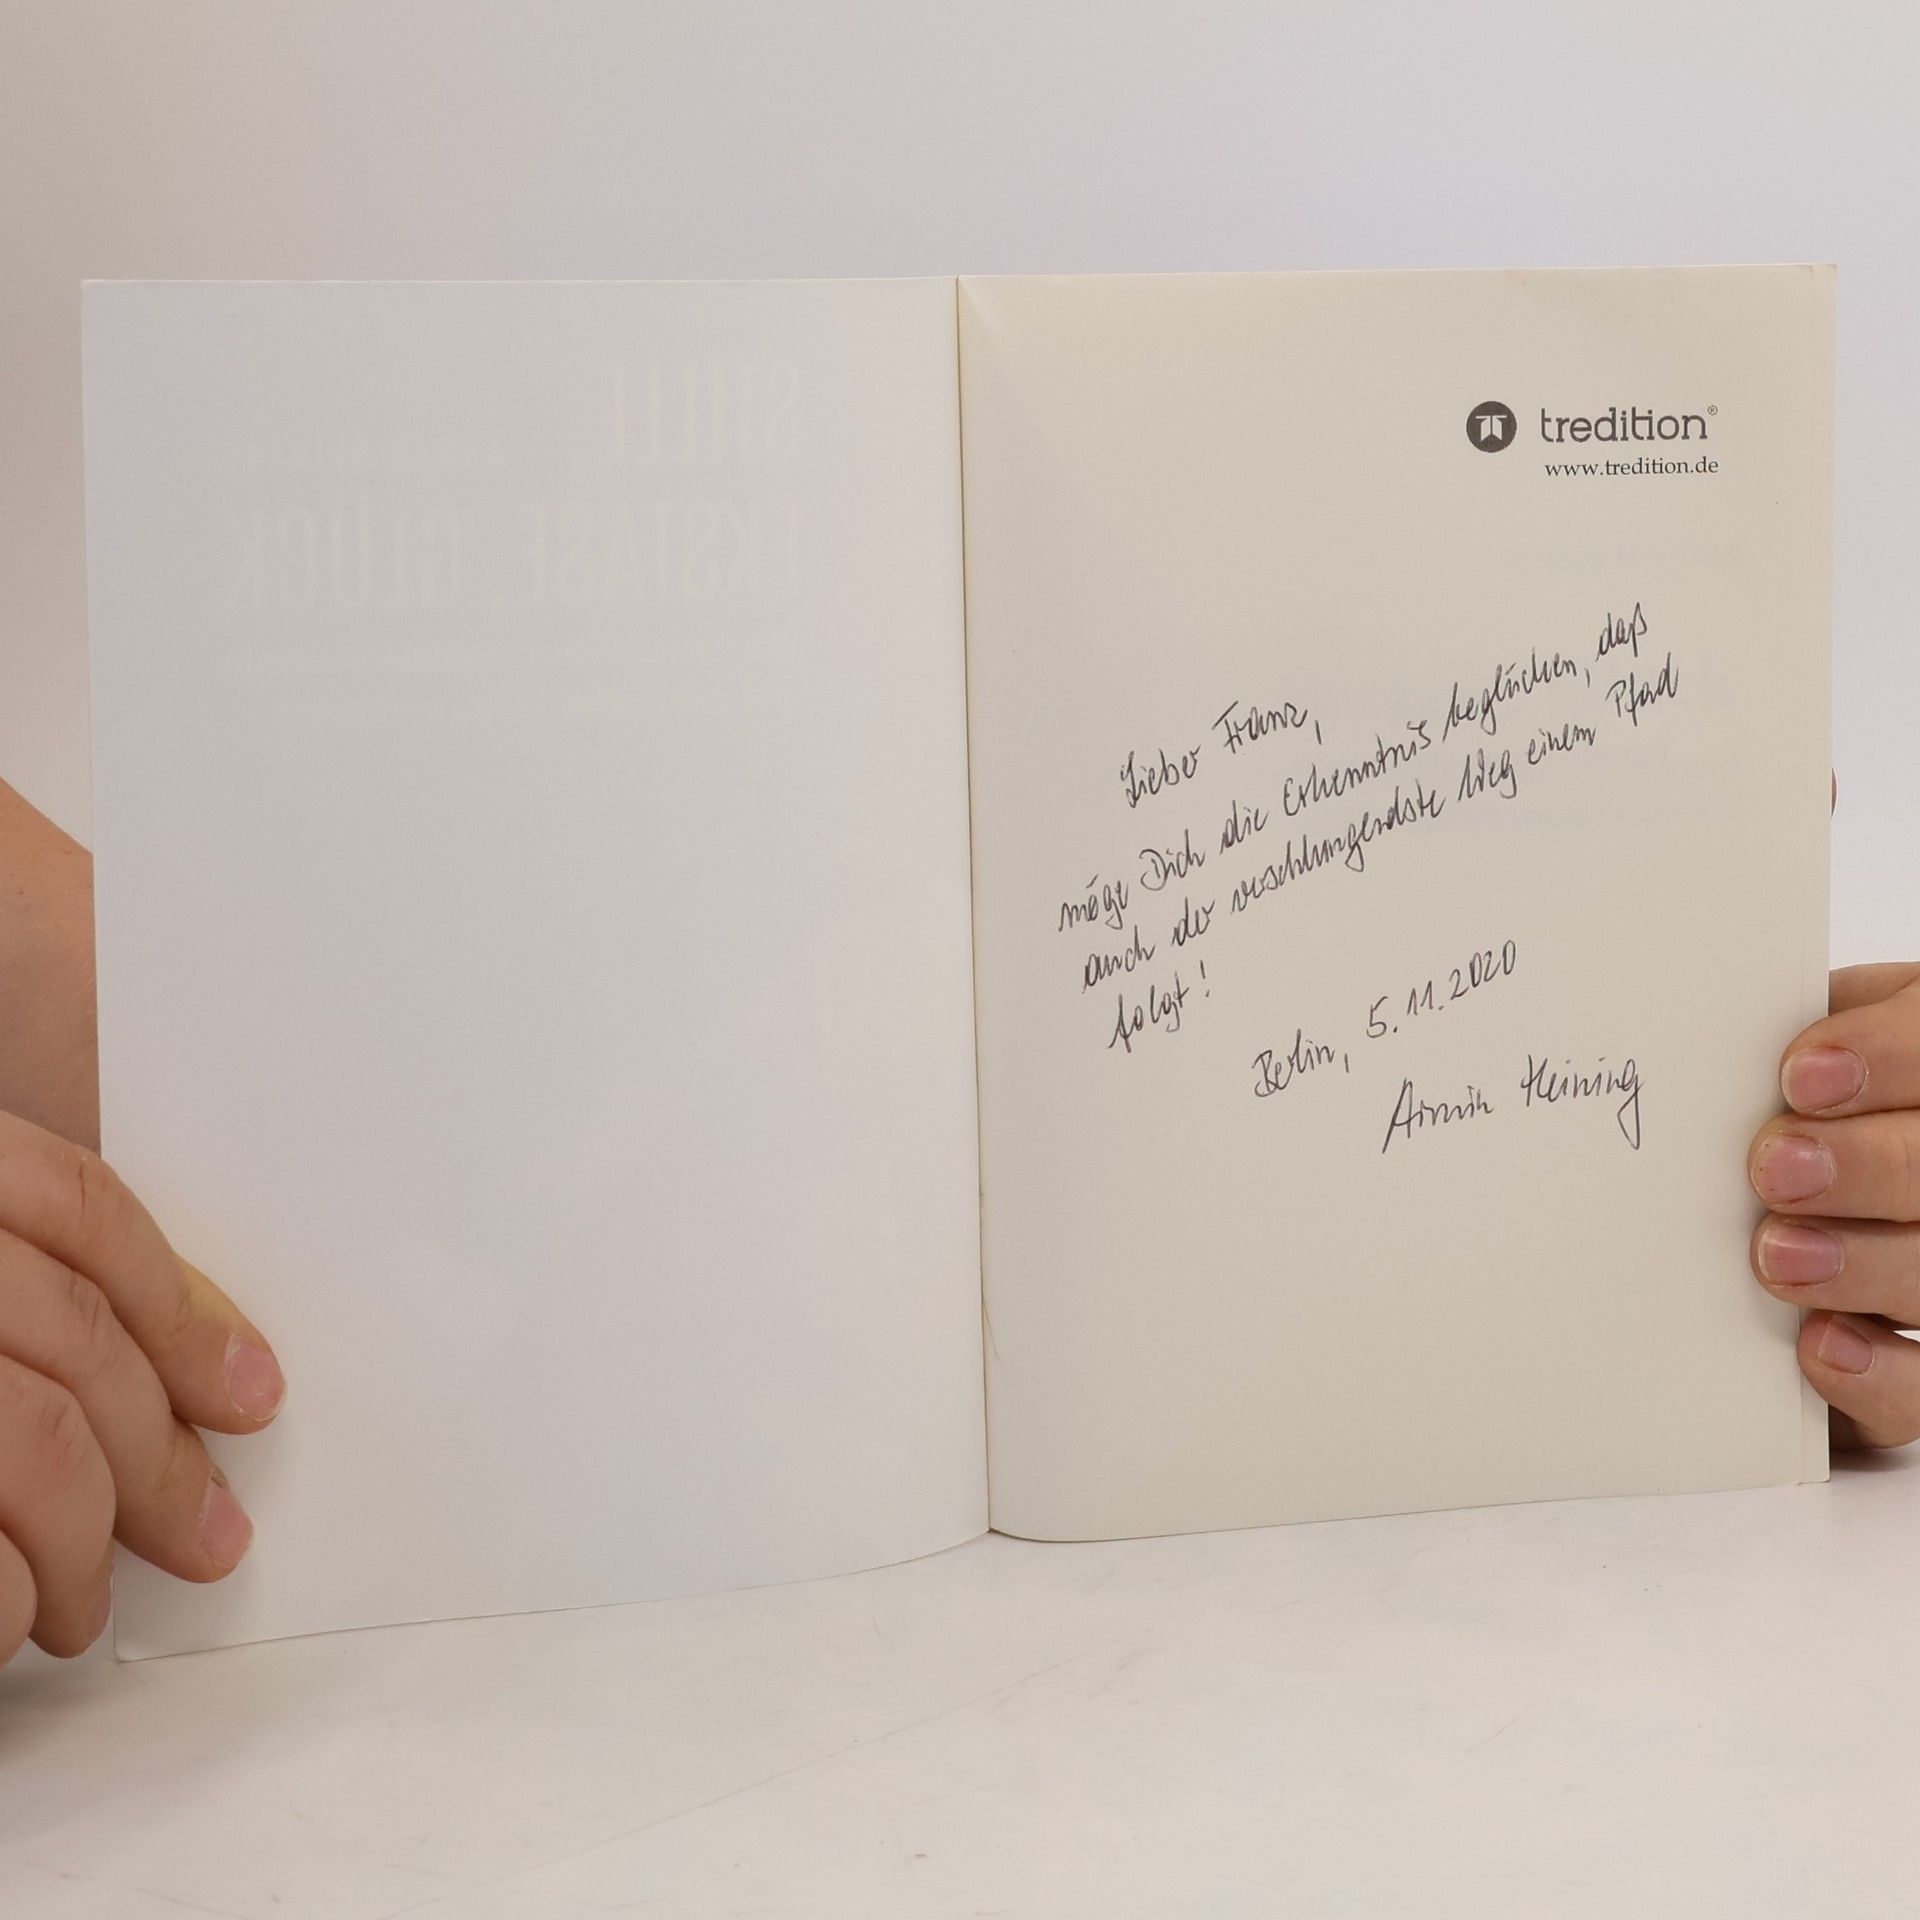 STILLE,
EKSTASE, GLÜCK
tredition®
www.tredition.de
Lieber Franz,
möge Dich die Erkenntnis beglücken, daß
auch der verschlungendste Weg einem Pfad
folgt!
Berlin, 5.11.2020
Armin Heining